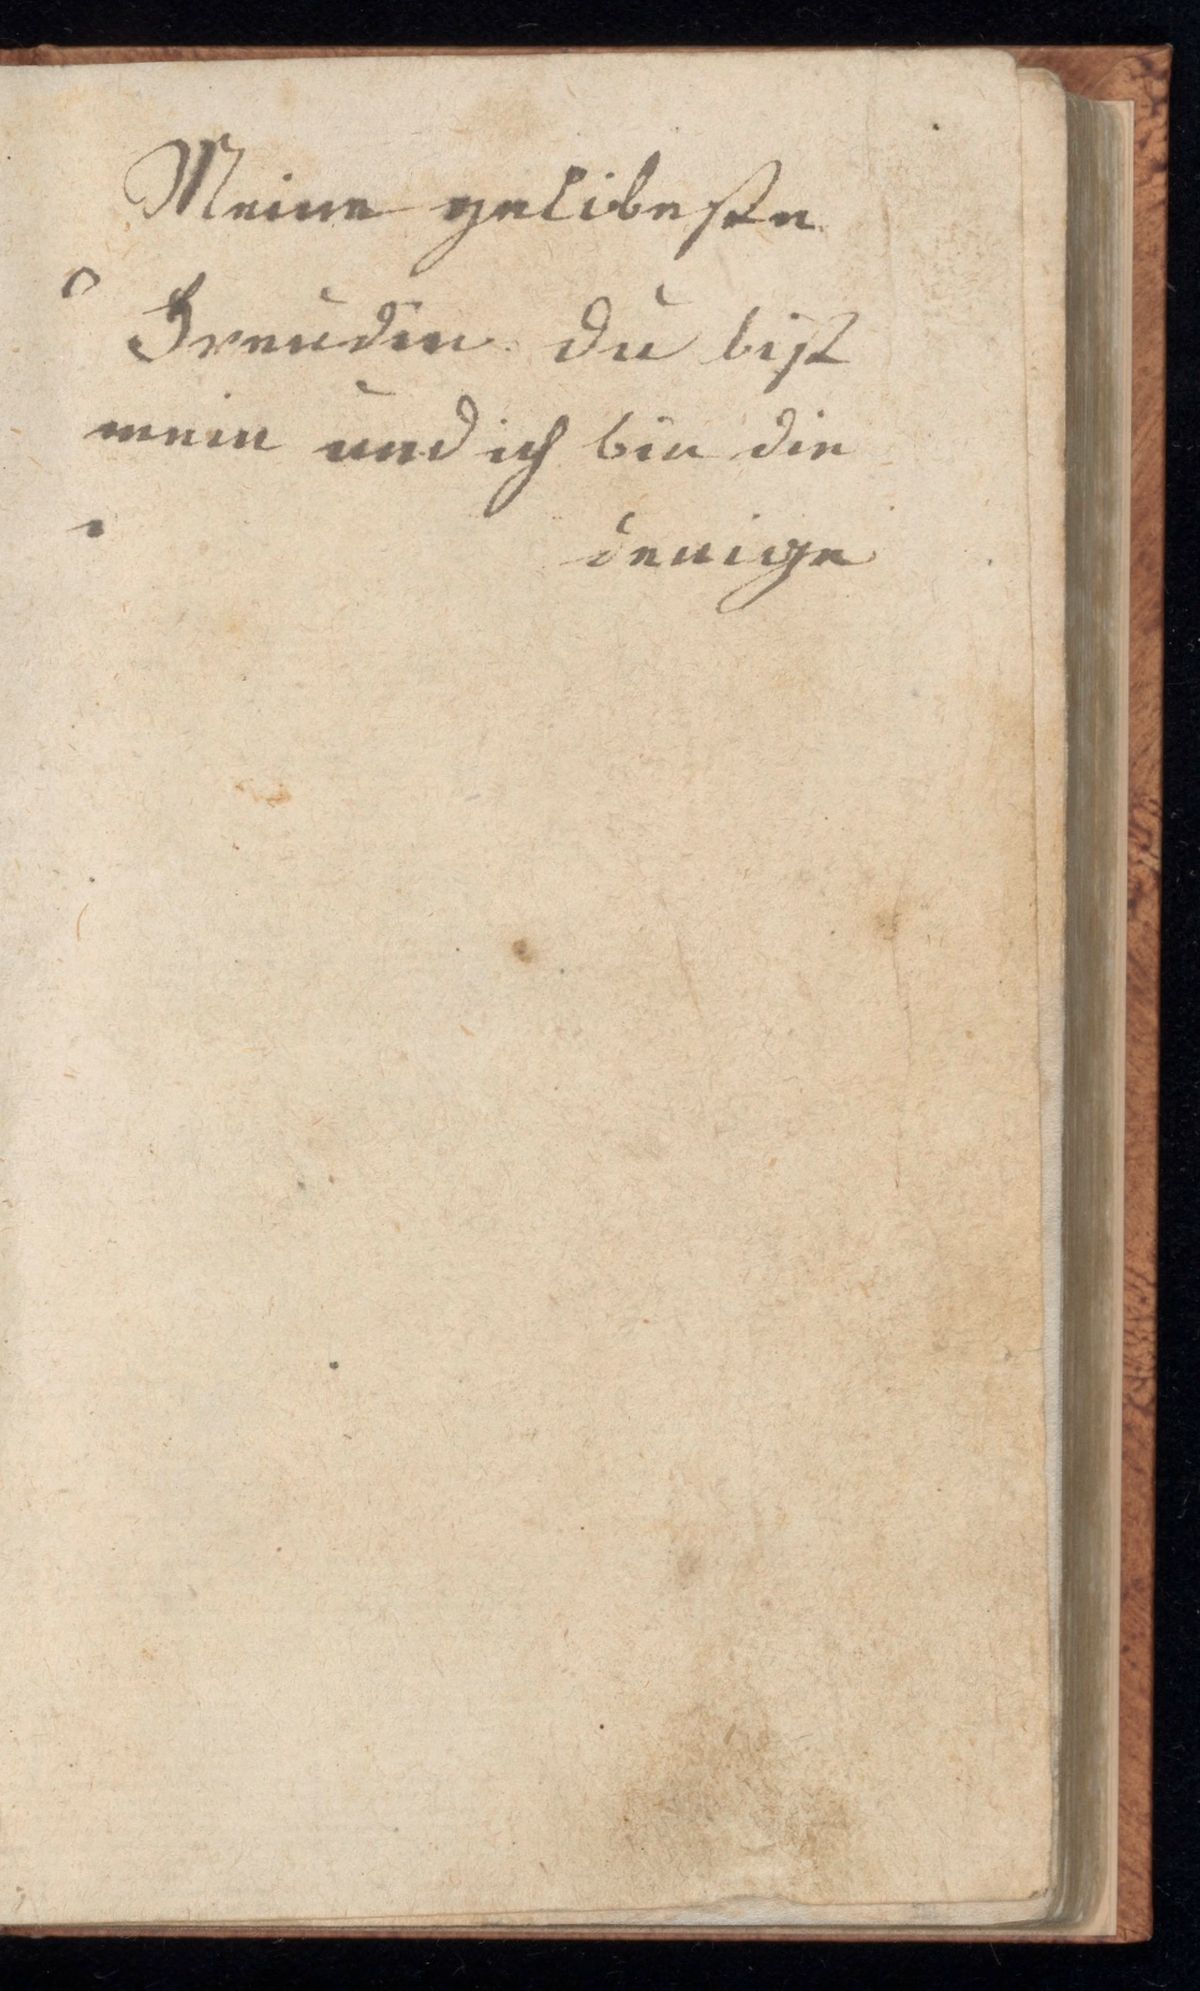 Meine gelibeste
Freudin du bist
mein und ich bin die
denige